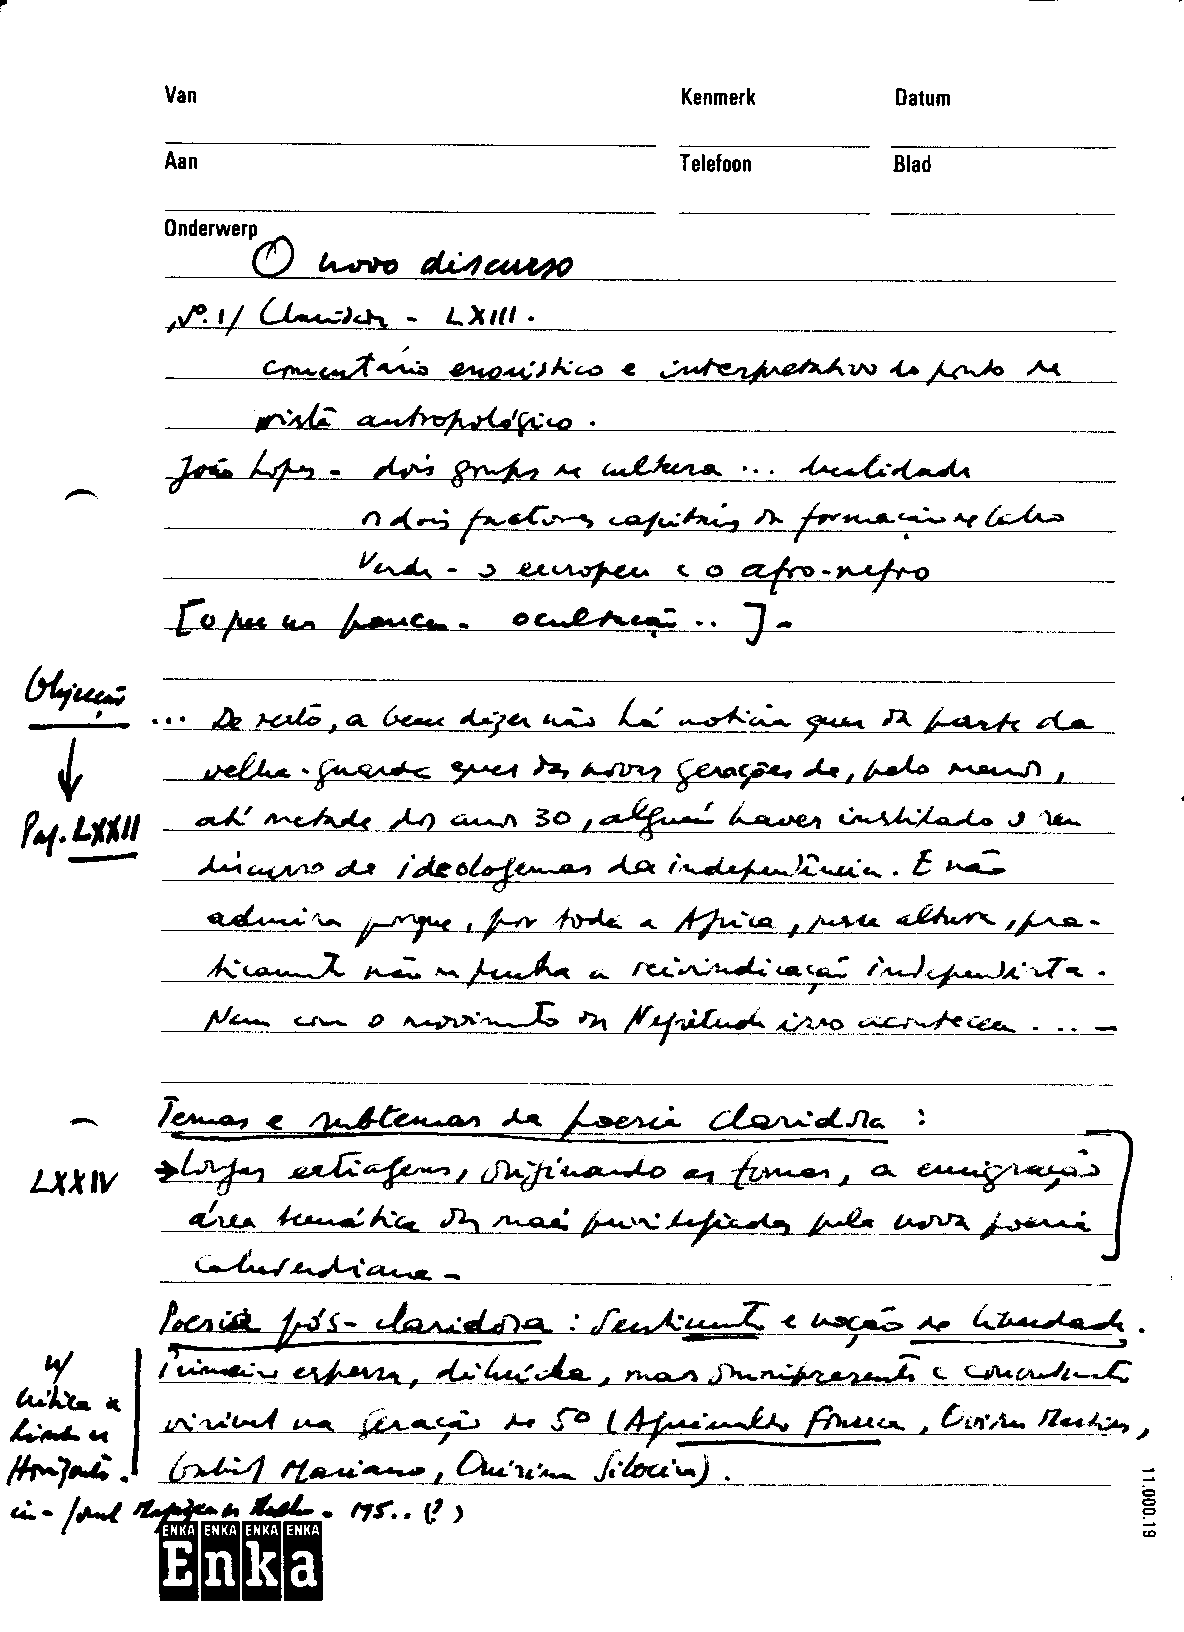 Van Kenmerk Datum
Aan Telefoon Blad
Onderwerp
O novo discurso
Nº.1/ Claridade - LXIII.
comentário enquistico e interpretativo do ponto de
vista antropológico.
João Lopes - dois grupos de cultura ... dualidade
dois factores capitais da formação de Cabo
Verde - o europeu e o afro-negro
[o que ... ocultação ..] -
Objecção
... De resto, a bem dizer não há notícia quer da parte da
velha-guarda quer das novas gerações de, pelo menos,
Pag. LXXII
até metade dos anos 30, alguém haver instilado o seu
discurso de ideologemas da independência. E não
admira porque, por toda a Africa, nessa altura, pra-
ticamente não se punha a reivindicação independista.
Nem com o movimento da Negritude isso aconteceu ... -
Temas e subtemas da poesia claridosa :
LXXIV
→ longas estiagens, originando as fomes, a emigração
área temática das mais privilegiadas pela nova poesia
caboverdiana -
Poesia pós-claridosa : Sentimento e noção de liberdade.
Primeiro esparsa, diluída, mas omnipresente e concretamente
visível na geração de 50 (Aguinaldo Fonseca, Ovídio Martins,
Gabriel Mariano, Onésimo Silveira).
v/
crítica a
Linha de
Horizonte.
in - 195.. (?)
ENKA ENKA ENKA ENKA
Enka
11.000.19